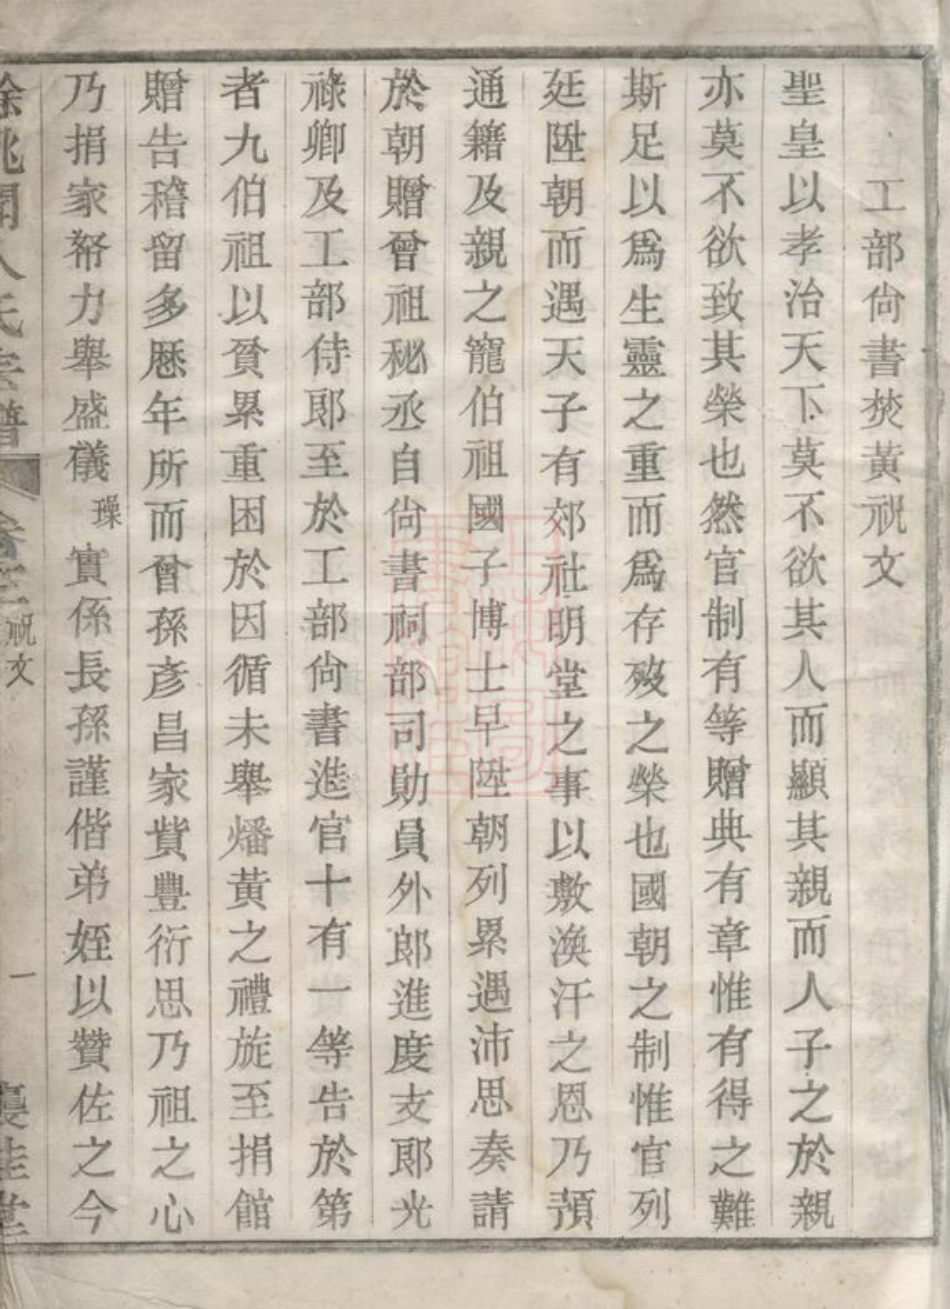 工部尙書焚黃祝文
聖皇以孝治天下莫不欲其人而顯其親而人子之於親
亦莫不欲致其榮也然官制有等贈典有章惟有得之難
斯足以爲生靈之重而爲存歿之榮也國朝之制惟官列
廷陞朝而遇天子有郊社明堂之事以敷渙汗之恩乃預
通籍及親之寵伯祖國子博士早陞朝列累遇沛思奏請
於朝贈曾祖秘丞自尙書祠部司勛員外郎進度支郎光
祿卿及工部侍郎至於工部尙書進官十有一等告於第
者九伯祖以貧累重困於因循未舉燔黃之禮旋至捐館
贈告稽留多歷年所而曾孫彥昌家貲豐衍思乃祖之心
乃捐家帑力舉盛儀璪實係長孫謹偕弟姪以贊佐之今
餘姚聞人氏宗譜 卷三 祝文 一